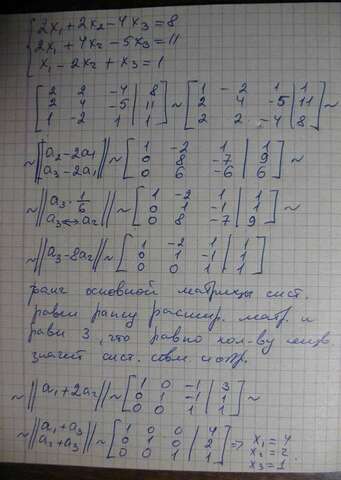 2x₁ + 2x₂ - 4x₃ = 8
2x₁ + 4x₂ - 5x₃ = 11
x₁ - 2x₂ + x₃ = 1
[2 2 -4 | 8] [1 -2 1 | 1]
[2 4 -5 | 11] ~ [2 4 -5 | 11] ~
[1 -2 1 | 1] [2 2 -4 | 8]
~ ‖a₂-2a₁‖ ~ [1 -2 1 | 1]
‖a₃-2a₁‖ [0 8 -7 | 9] ~
[0 6 -6 | 6]
~ ‖a₃·1/6‖ ~ [1 -2 1 | 1]
‖a₃↔a₂‖ [0 1 -1 | 1] ~
[0 8 -7 | 9]
~ ‖a₃-8a₂‖ ~ [1 -2 1 | 1]
[0 1 -1 | 1]
[0 0 1 | 1]
ранг основной матрицы сист.
равен рангу расшир. матр. и
равен 3, что равно кол-ву неизв.
значит сист. совм и опр.
~ ‖a₁+2a₂‖ ~ [1 0 -1 | 3]
[0 1 -1 | 1] ~
[0 0 1 | 1]
~ ‖a₁+a₃‖ ~ [1 0 0 | 4] x₁=4
‖a₂+a₃‖ [0 1 0 | 2] => x₂=2
[0 0 1 | 1] x₃=1.